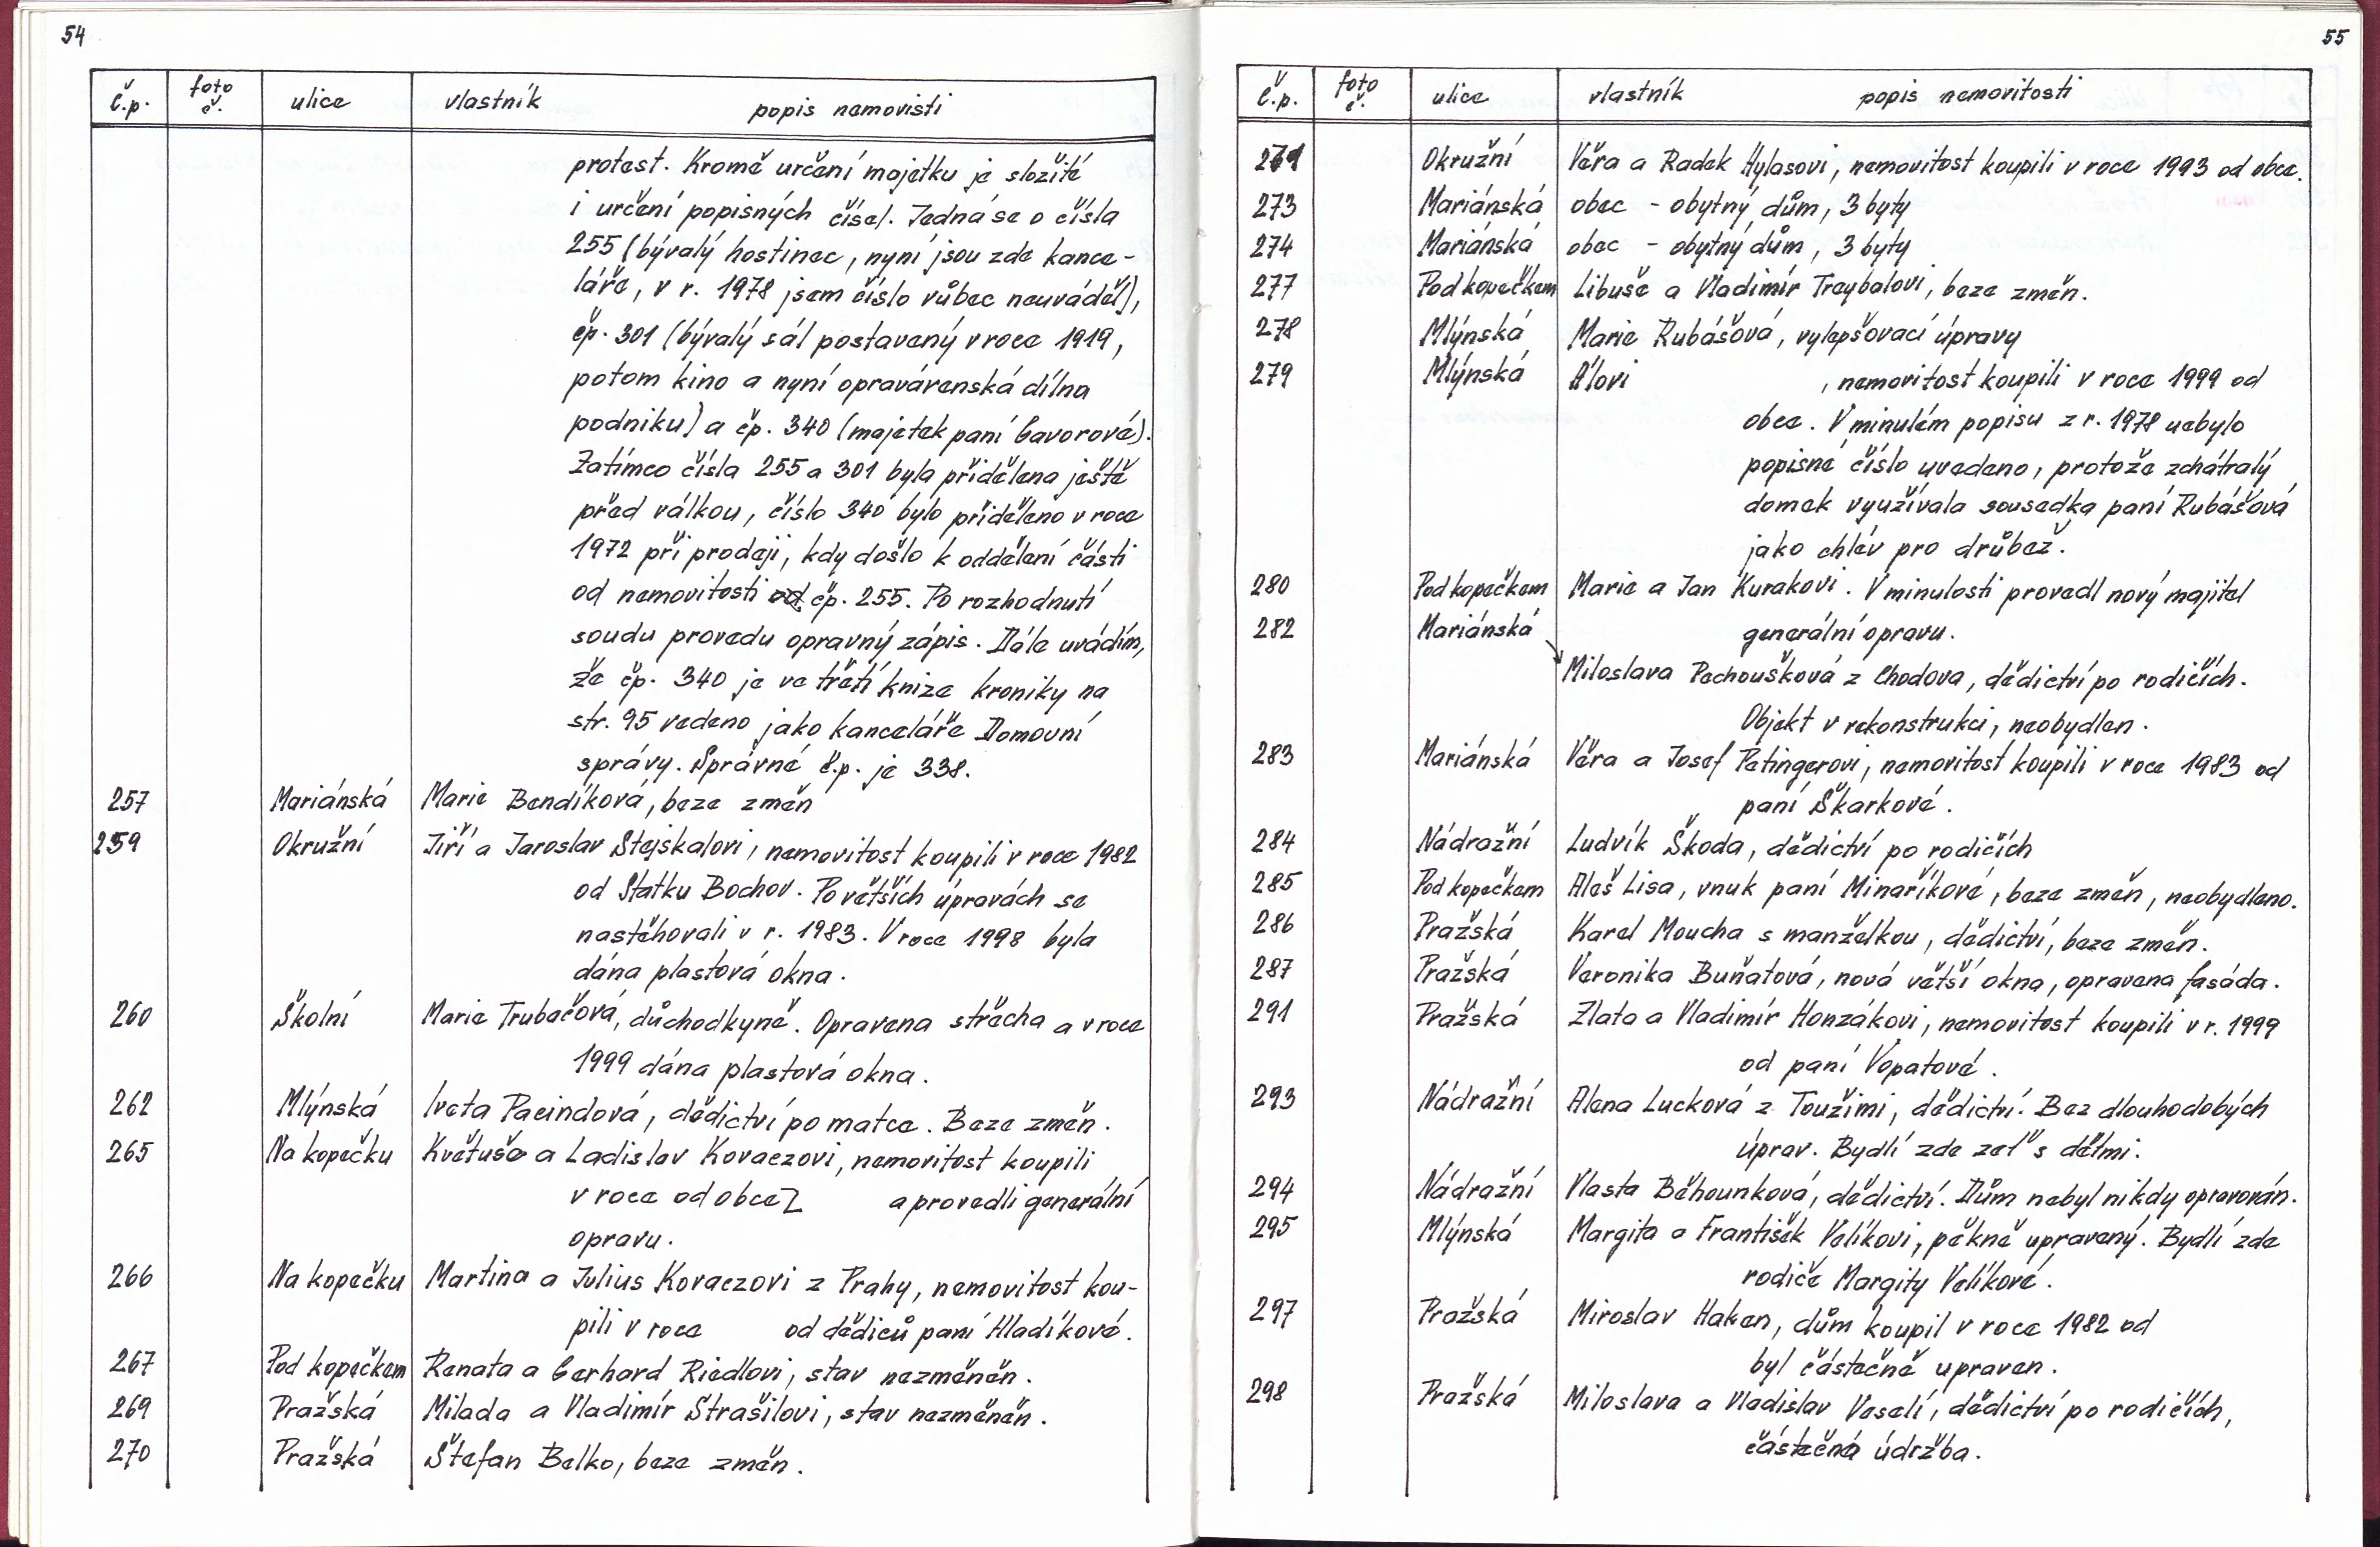 54
č.p. foto č. ulice vlastník popis nemovisti
protest. Kromě určení majetku je složité
i určení popisných čísel. Jedná se o čísla
255 (bývalý hostinec, nyní jsou zde kance-
láře, v r. 1978 jsem číslo vůbec neuváděl),
čp. 301 (bývalý sál postavený v roce 1919,
potom kino a nyní opravárenská dílna
podniku) a čp. 340 (majetek paní Gavorové).
Zatímco čísla 255 a 301 byla přidělena ještě
před válkou, číslo 340 bylo přiděleno v roce
1972 při prodeji, kdy došlo k oddělení části
od nemovitosti od čp. 255. Po rozhodnutí
soudu provedu opravný zápis. Dále uvádím,
že čp. 340 je ve třetí knize kroniky na
str. 95 vedeno jako kanceláře Domovní
správy. Správné č.p. je 338.
257 Mariánská Marie Bendíková, beze změn
259 Okružní Jiří a Jaroslav Stejskalovi, nemovitost koupili v roce 1982
od Statku Bochov. Po větších úpravách se
nastěhovali v r. 1983. V roce 1998 byla
dána plastová okna.
260 Školní Marie Trubačová, důchodkyně. Opravena střecha a v roce
1999 dána plastová okna.
262 Mlýnská Iveta Pacindová, dědictví po matce. Beze změn.
265 Na kopečku Květuše a Ladislav Kovaczovi, nemovitost koupili
v roce od obce Z a provedli generální
opravu.
266 Na kopečku Martina a Julius Kovaczovi z Prahy, nemovitost kou-
pili v roce od dědiců paní Hladíkové.
267 Pod kopečkem Renata a Gerhard Riedlovi, stav nezměněn.
269 Pražská Milada a Vladimír Strašilovi, stav nezměněn.
270 Pražská Štefan Belko, beze změn.
55
č.p. foto č. ulice vlastník popis nemovitosti
271 Okružní Věra a Radek Hylasovi, nemovitost koupili v roce 1993 od obce.
273 Mariánská obec - obytný dům, 3 byty
274 Mariánská obec - obytný dům, 3 byty
277 Pod kopečkem Libuše a Vladimír Treybalovi, beze změn.
278 Mlýnská Marie Rubášová, vylepšovací úpravy
279 Mlýnská Álovi , nemovitost koupili v roce 1999 od
obce. V minulém popisu z r. 1978 nebylo
popisné číslo uvedeno, protože zchátralý
domek využívala sousedka paní Rubášová
jako chlév pro drůbež.
280 Pod kopečkem Marie a Jan Kurakovi. V minulosti provedl nový majitel
282 Mariánská generální opravu.
Miloslava Pechoušková z Chodova, dědictví po rodičích.
Objekt v rekonstrukci, neobydlen.
283 Mariánská Věra a Josef Petingerovi, nemovitost koupili v roce 1983 od
paní Škarkové.
284 Nádražní Ludvík Škoda, dědictví po rodičích
285 Pod kopečkem Aleš Lisa, vnuk paní Minaříkové, beze změn, neobydleno.
286 Pražská Karel Moucha s manželkou, dědictví, beze změn.
287 Pražská Veronika Buňatová, nová větší okna, opravena fasáda.
291 Pražská Zlata a Vladimír Honzákovi, nemovitost koupili v r. 1999
od paní Vopatové.
293 Nádražní Alena Lucková z Toužimi, dědictví. Bez dlouhodobých
úprav. Bydlí zde zeť s dětmi.
294 Nádražní Vlasta Běhounková, dědictví. Dům nebyl nikdy opravován.
295 Mlýnská Margita a František Velíkovi, pěkně upravený. Bydlí zde
rodiče Margity Velíkové.
297 Pražská Miroslav Haken, dům koupil v roce 1982 od
byl částečně upraven.
298 Pražská Miloslava a Vladislav Veselí, dědictví po rodičích,
částečná údržba.